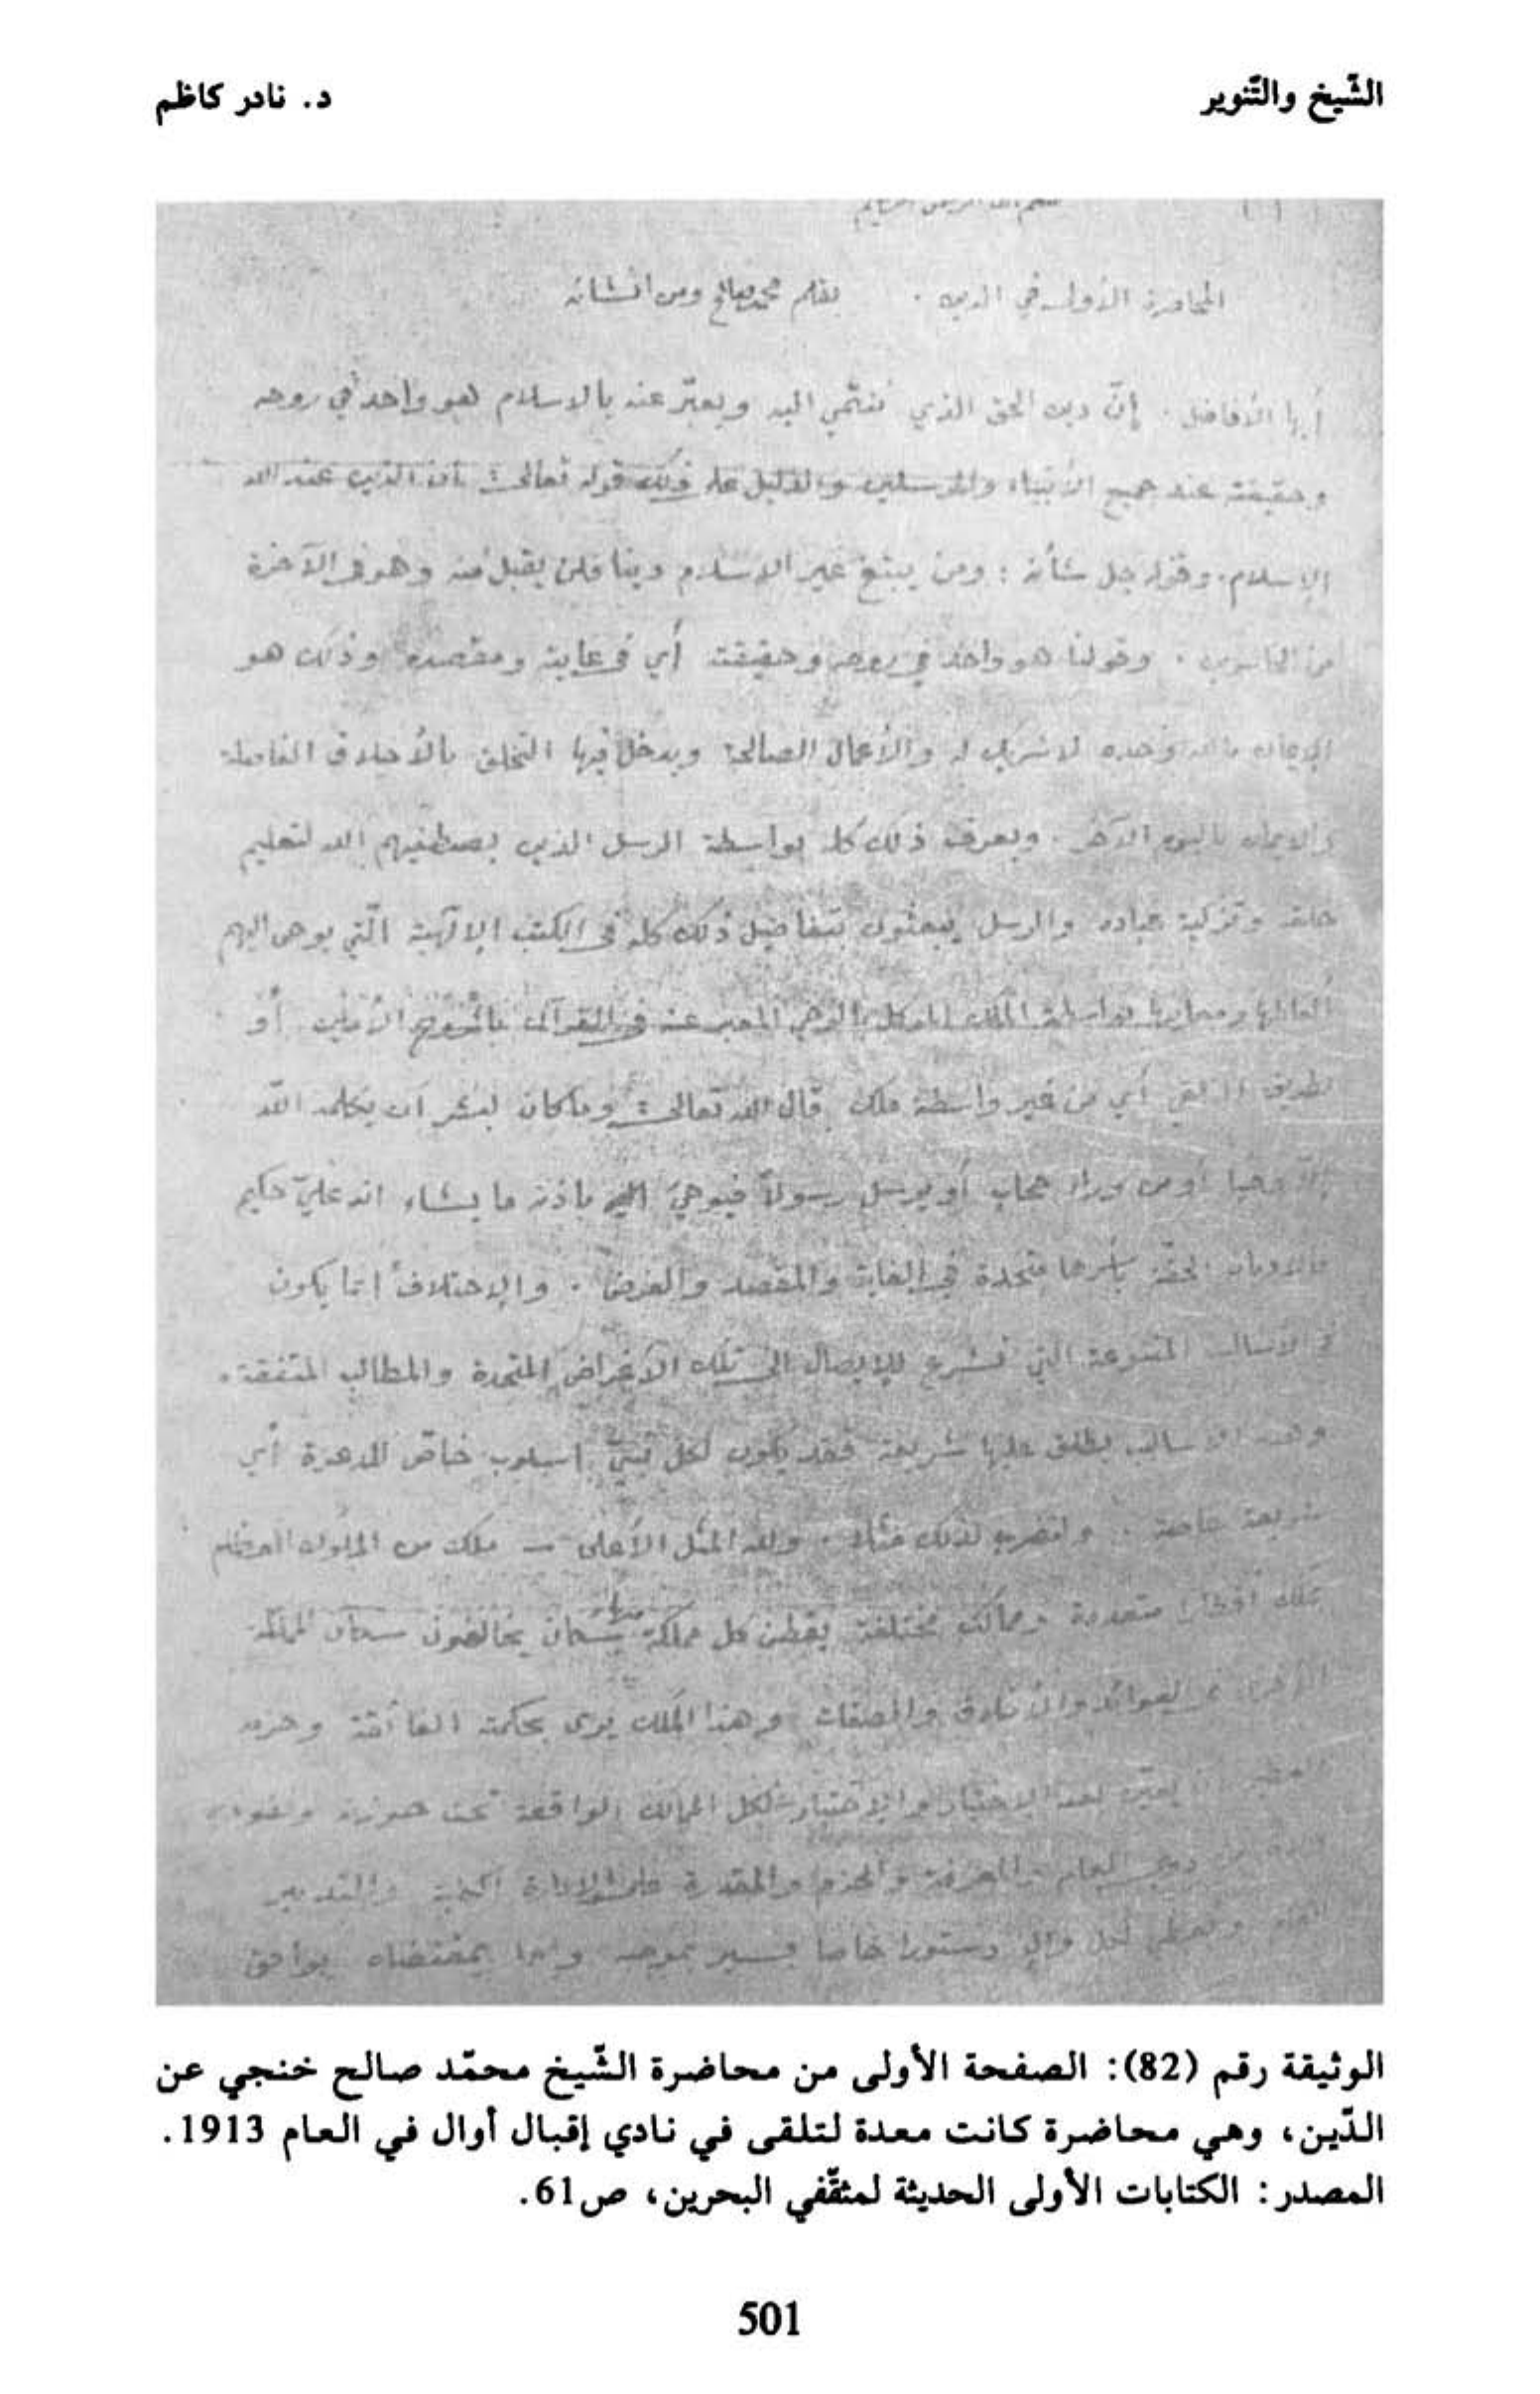 الشّيخ والتّنوير
د. نادر كاظم
بسم الله الرحمن الرحيم
المحاضرة الأولى في الدين . بقلم محمد صالح ومن انشائه
أيها الأفاضل . إنّ دين الحق الذي ننتمي اليه ويعبّر عنه بالاسلام هو واحد في روحه
وحقيقته عند جميع الأنبياء والمرسلين والدليل على ذلك قوله تعالى : ان الدين عند الله
الإسلام. وقوله جل شأنه : ومن يبتغ غير الاسلام دينا فلن يقبل منه وهو في الآخرة
من الخاسرين . وقولنا هو واحد في روحه وحقيقته أي في غايته ومقصده وذلك هو
الإيمان بالله وحده لا شريك له والأعمال الصالحة ويدخل فيها التخلق بالأخلاق الفاضلة
والايمان باليوم الآخر . ويعرف ذلك كله بواسطة الرسل الذين يصطفيهم الله لتعليم
خلقه وتزكية عباده والرسل يبعثون بتفاصيل ذلك كله في الكتب الإلهية الّتي يوحى اليهم
ألفاظها ومعانيها بواسطة الملك الموكل بالوحي المعبر عنه في القرآن بالروح الأمين أو
بطريق التلقي أي من غير واسطة ملك قال الله تعالى : وما كان لبشر أن يكلمه الله
إلّا وحيا أو من وراء حجاب أو يرسل رسولاً فيوحي اليه باذنه ما يشاء انه عليّ حكيم
فالاديان الحقّة بأسرها متحدة في الغاية والمقصد والغرض . والإختلاف انما يكون
في الاساليب المتنوعة التي تشرع للإيصال الى تلك الأغراض المتحدة والمطالب المتفقة.
وهذه الاساليب يطلق عليها شريعة فقد يكون لكل نبيّ اسلوب خاصّ للدعوة أي
شريعة خاصة . ولنضرب لذلك مثلا . ولله المثل الأعلى – ملك من الملوك العظام
تملك أقطارا متعددة وممالك مختلفة يقطن كل مملكة منها سكان يخالفون سكان المملكة
الأخرى في العوائد والأخلاق والصفات وهذا الملك يرى بحكمته الفائقة وحزمه
يعيّن بعد الإختبار والإختيار لكل الممالك الواقعة تحت حوزته ونفوذه
ذوي العلم والمعرفة والحزم والمقدرة على الإدارة والتدبير
ويعطي لكل والٍ دستورا خاصا يسير بموجبه بمقتضاه يوافق
الوثيقة رقم (82): الصفحة الأولى من محاضرة الشّيخ محمّد صالح خنجي عن
الدّين، وهي محاضرة كانت معدة لتلقى في نادي إقبال أوال في العام 1913.
المصدر: الكتابات الأولى الحديثة لمثقّفي البحرين، ص61.
501